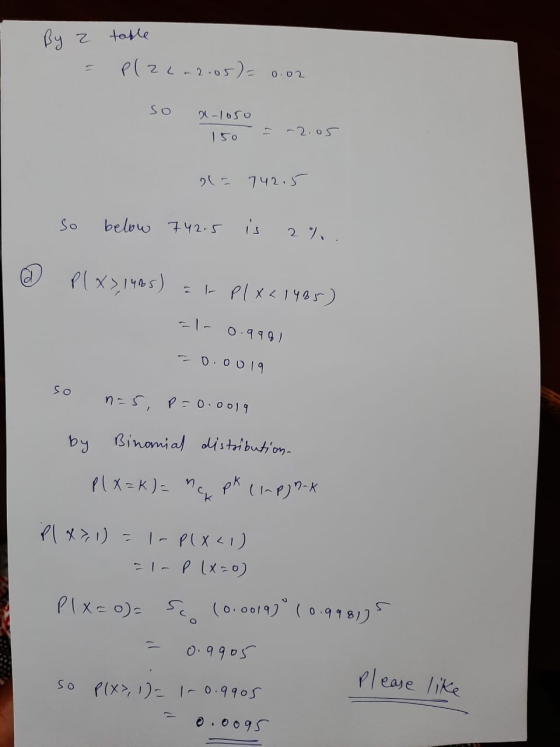 By z table
= P(z < -2.05) = 0.02
so x-1050 / 150 = -2.05
x = 742.5
So below 742.5 is 2 %.
(d) P(X ≥ 1485) = 1- P(X < 1485)
= 1- 0.9981
= 0.0019
so
n=5, P=0.0019
by Binomial distribution-
P(X=K) = nCk p^k (1-P)^n-k
P(X ≥ 1) = 1- P(X < 1)
= 1- P(X=0)
P(X=0) = 5C0 (0.0019)^0 (0.9981)^5
= 0.9905
so P(X ≥ 1) = 1- 0.9905
Please like
= 0.0095